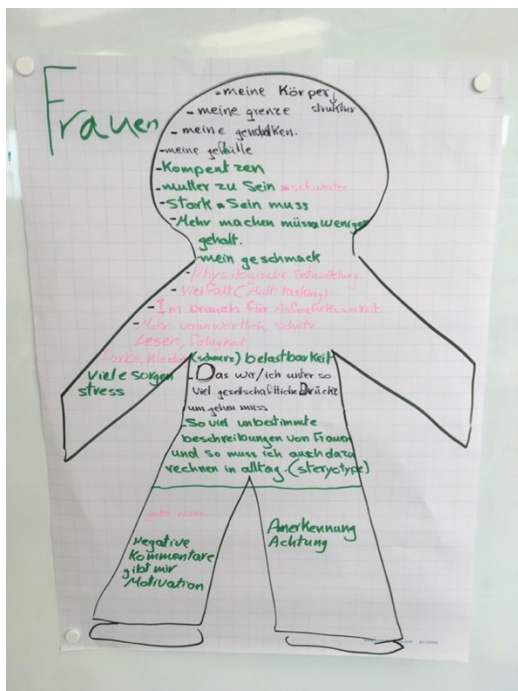 Frauen
- meine Körper,
struktur
- meine grenze
- meine gendalken.
- meine gefühlle
- Kompentzen
- mutter zu Sein - schwester
- Stark Sein muss
- Mehr machen müssen weniger
gehalt.
- mein geschmack
- Physiologische Entwicklung
- Vielfalt (Multitasking)
- Im brauch für Aufmerksamkeit.
- Mehr verantwortlich, schutz
Lesen, Fähigkeit
(schmerz) belastbarkeit
Viele sorgen
stress
- Das wir/ich unter so
viel gesellschaftliche Drücke
um gehen muss
So viel unbestimmte
beschreibungen von Frauen
und so muss ich auch dazu
rechnen in alltag. (steryotype)
Negative
Kommentare
gibt mir
Motivation
Anerkennung
Achtung